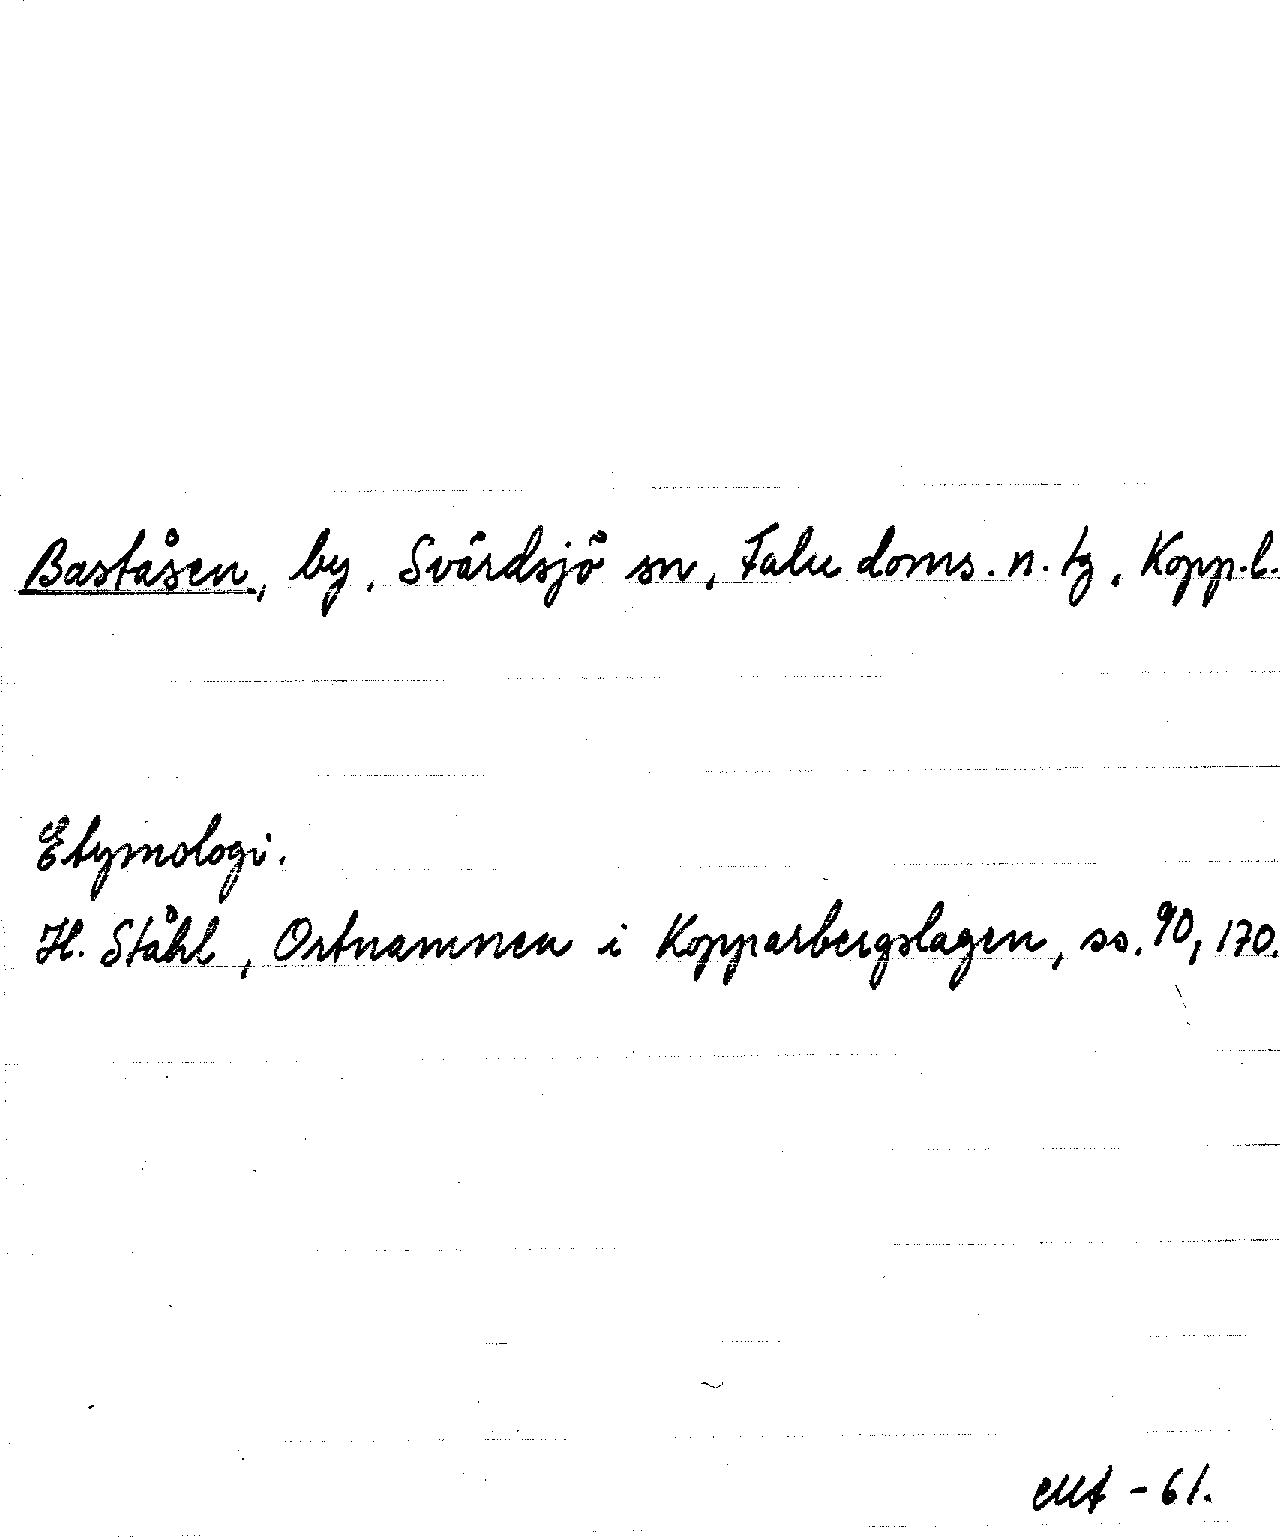 Baståsen, by, Svärdsjö sn, Falu doms. n. tg, Kopp.l.
Etymologi.
H. Ståhl, Ortnamnen i Kopparbergslagen, ss. 90, 170.
-61.